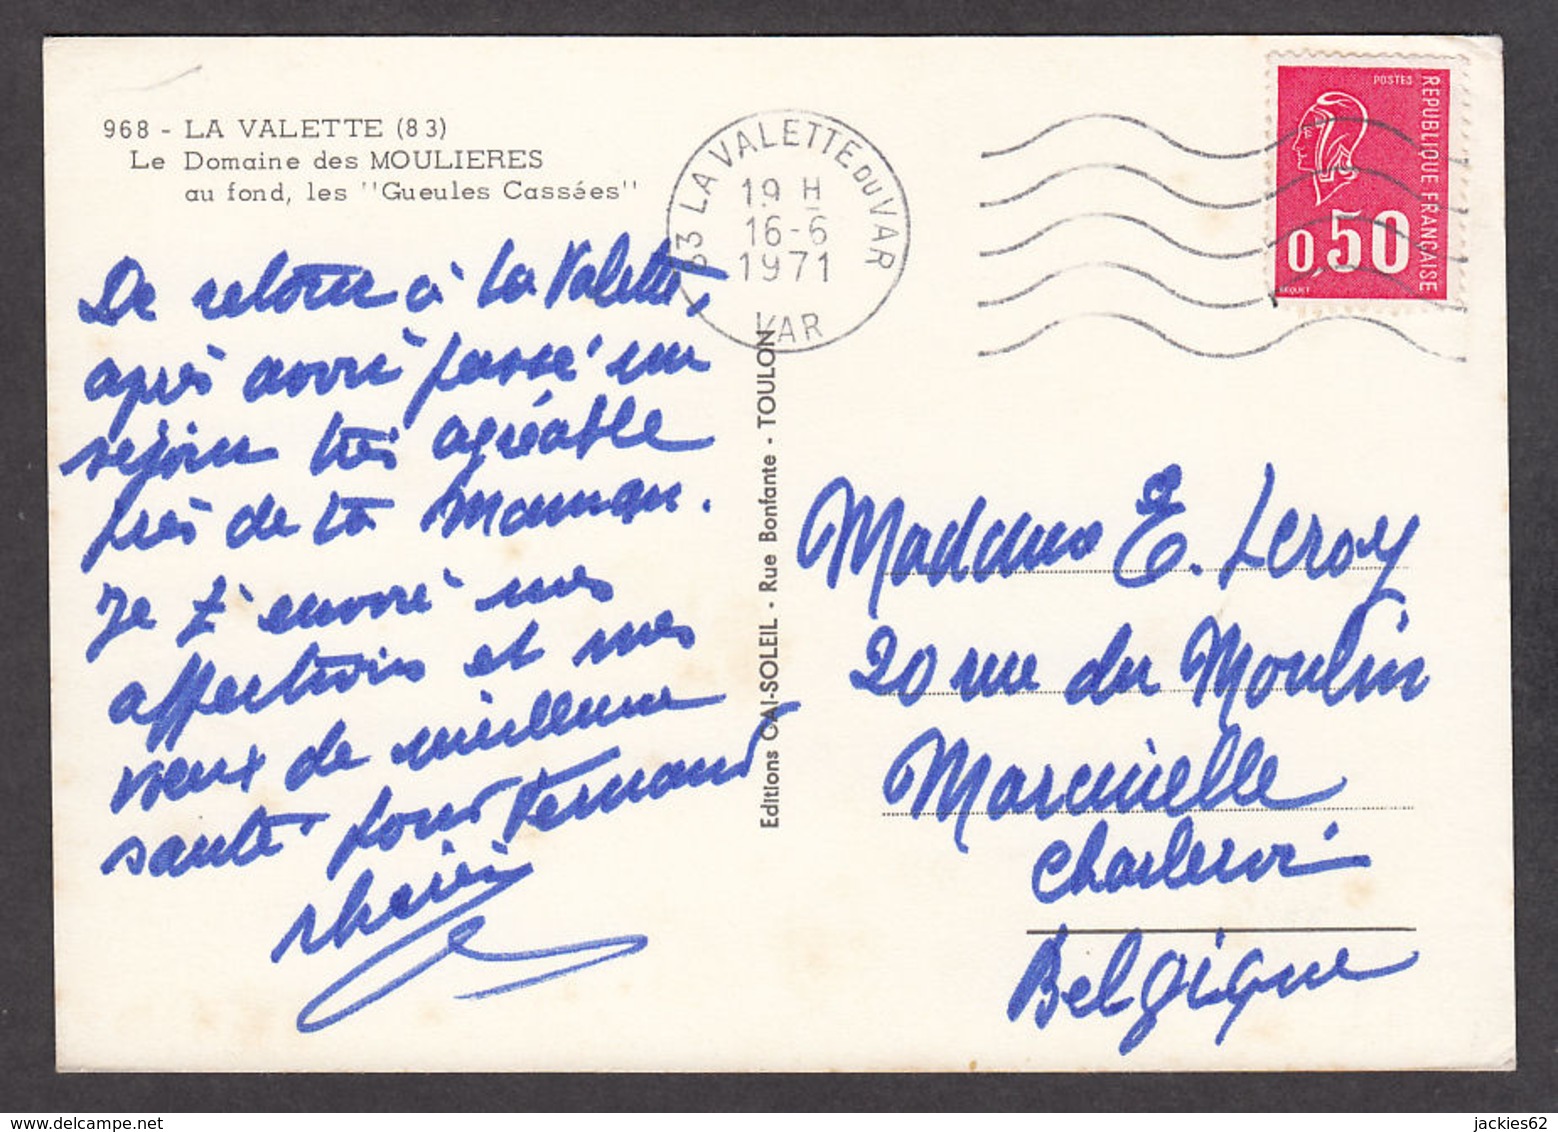 968 - LA VALETTE (83)
Le Domaine des MOULIERES
au fond, les "Gueules Cassées"
De retour à La Valette,
après avoir passé un
séjour très agréable
près de ta Maman.
Je t'envoie mes
affections et mes
vœux de meilleure
santé pour Fernand
83 LA VALETTE DU VAR
19 H
16-6
1971
VAR
POSTES
REPUBLIQUE FRANÇAISE
0,50
BEQUET
Editions CAI-SOLEIL - Rue Bonfante - TOULON
Madame E. Leroy
20 rue du Moulin
Marcinelle
Charleroi
Belgique
jackies62